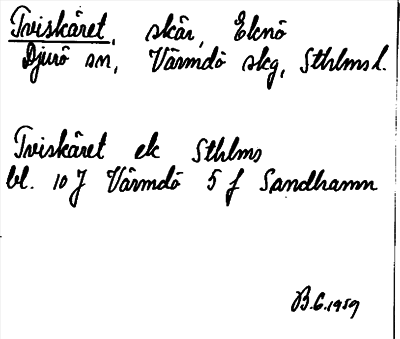 Tviskäret, skär, Eknö
Djurö sn, Värmdö skg, Sthlms l.
Tviskäret ek Sthlms
bl. 10 J Värmdö 5 f Sandhamn
B.G. 1959